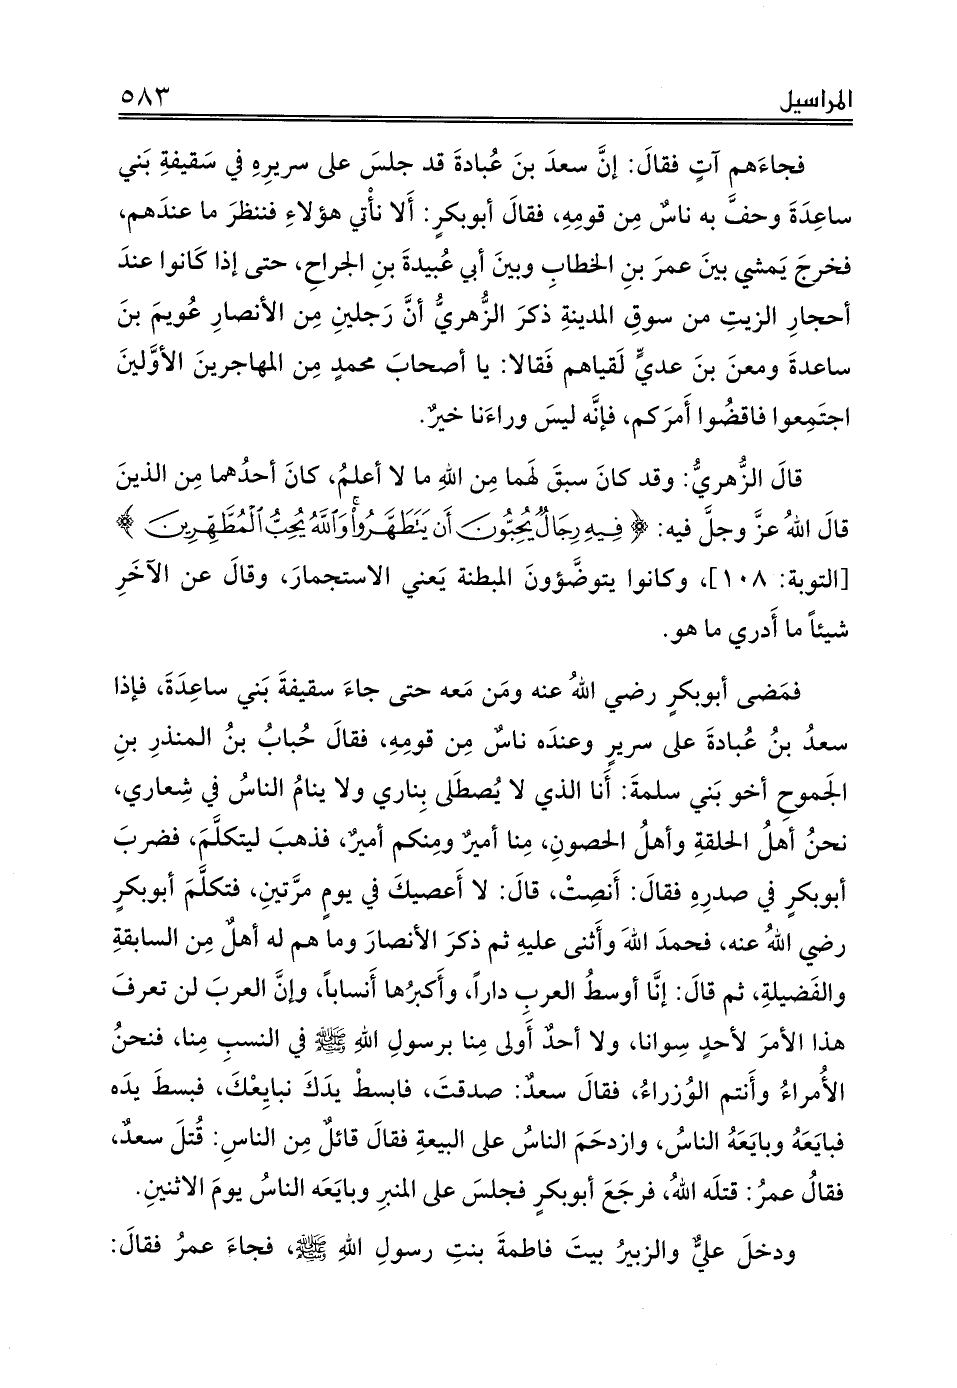 المراسيل ٥٨٣
فجاءَهم آتٍ فقالَ: إنَّ سعدَ بنَ عُبادةَ قد جلسَ على سريرِهِ في سَقيفةِ بَني
ساعِدَةَ وحفَّ به ناسٌ مِن قومِهِ، فقالَ أبوبكرٍ: أَلا نأْتي هؤلاءِ فننظرَ ما عندَهم،
فخرجَ يَمشي بينَ عمرَ بنِ الخطابِ وبينَ أبي عُبيدةَ بنِ الجراحِ، حتى إذا كَانوا عندَ
أحجارِ الزيتِ من سوقِ المدينةِ ذكرَ الزُّهريُّ أنَّ رَجلينِ مِن الأنصارِ عُويمَ بنَ
ساعدةَ ومعنَ بنَ عديٍّ لَقياهم فَقالا: يا أصحابَ محمدٍ مِن المهاجرينَ الأوَّلينَ
اجتَمِعوا فاقضُوا أَمرَكم، فإنَّه ليسَ وراءَنا خيرٌ.
قالَ الزُّهريُّ: وقد كانَ سبقَ لهَما مِن اللهِ ما لا أعلمُ، كانَ أحدُهما مِن الذينَ
قالَ اللهُ عزَّ وجلَّ فيه: ﴿ فِيهِ رِجَالٌ يُحِبُّونَ أَن يَتَطَهَّرُواْ وَاللَّهُ يُحِبُّ الْمُطَّهِّرِينَ ﴾
[التوبة: ١٠٨]، وكانوا يتوضَّؤونَ المبطنة يَعني الاستجمارَ، وقالَ عن الآخَرِ
شيئاً ما أَدري ما هو.
فمَضى أبوبكرٍ رضي اللهُ عنه ومَن مَعه حتى جاءَ سقيفةَ بَني ساعِدَةَ، فإذا
سعدُ بنُ عُبادةَ على سريرٍ وعندَه ناسٌ مِن قومِهِ، فقالَ حُبابُ بنُ المنذرِ بنِ
الجَموحِ أخو بَني سلمةَ: أَنا الذي لا يُصطَلى بِناري ولا ينامُ الناسُ في شِعاري،
نحنُ أهلُ الحلقةِ وأهلُ الحصونِ، مِنا أميرٌ ومِنكم أميرٌ، فذهبَ ليتكلَّمَ، فضربَ
أبوبكرٍ في صدرِهِ فقالَ: أَنصِتْ، قالَ: لا أَعصيكَ في يومٍ مرَّتينِ، فتكلَّمَ أبوبكرٍ
رضي اللهُ عنه، فحمدَ اللهَ وأَثنى عليهِ ثم ذكرَ الأنصارَ وما هم له أهلٌ مِن السابقةِ
والفَضيلةِ، ثم قالَ: إنَّا أوسطُ العربِ داراً، وأَكبرُها أَنساباً، وإنَّ العربَ لن تعرفَ
هذا الأمرَ لأَحدٍ سِوانا، ولا أحدٌ أَولى مِنا برسولِ اللهِ ﷺ في النسبِ مِنا، فنحنُ
الأُمراءُ وأَنتم الوُزراءُ، فقالَ سعدٌ: صدقتَ، فابسطْ يدَكَ نبايعْكَ، فبسطَ يدَه
فبايَعَهُ وبايَعَهُ الناسُ، وازدحَمَ الناسُ على البيعةِ فقالَ قائلٌ مِن الناسِ: قُتلَ سعدٌ،
فقالُ عمرُ: قتلَه اللهُ، فرجَعَ أبوبكرٍ فجلسَ على المنبرِ وبايَعَه الناسُ يومَ الاثنينِ.
ودخلَ عليٌّ والزبيرُ بيتَ فاطمةَ بنتِ رسولِ اللهِ ﷺ، فجاءَ عمرُ فقالَ: